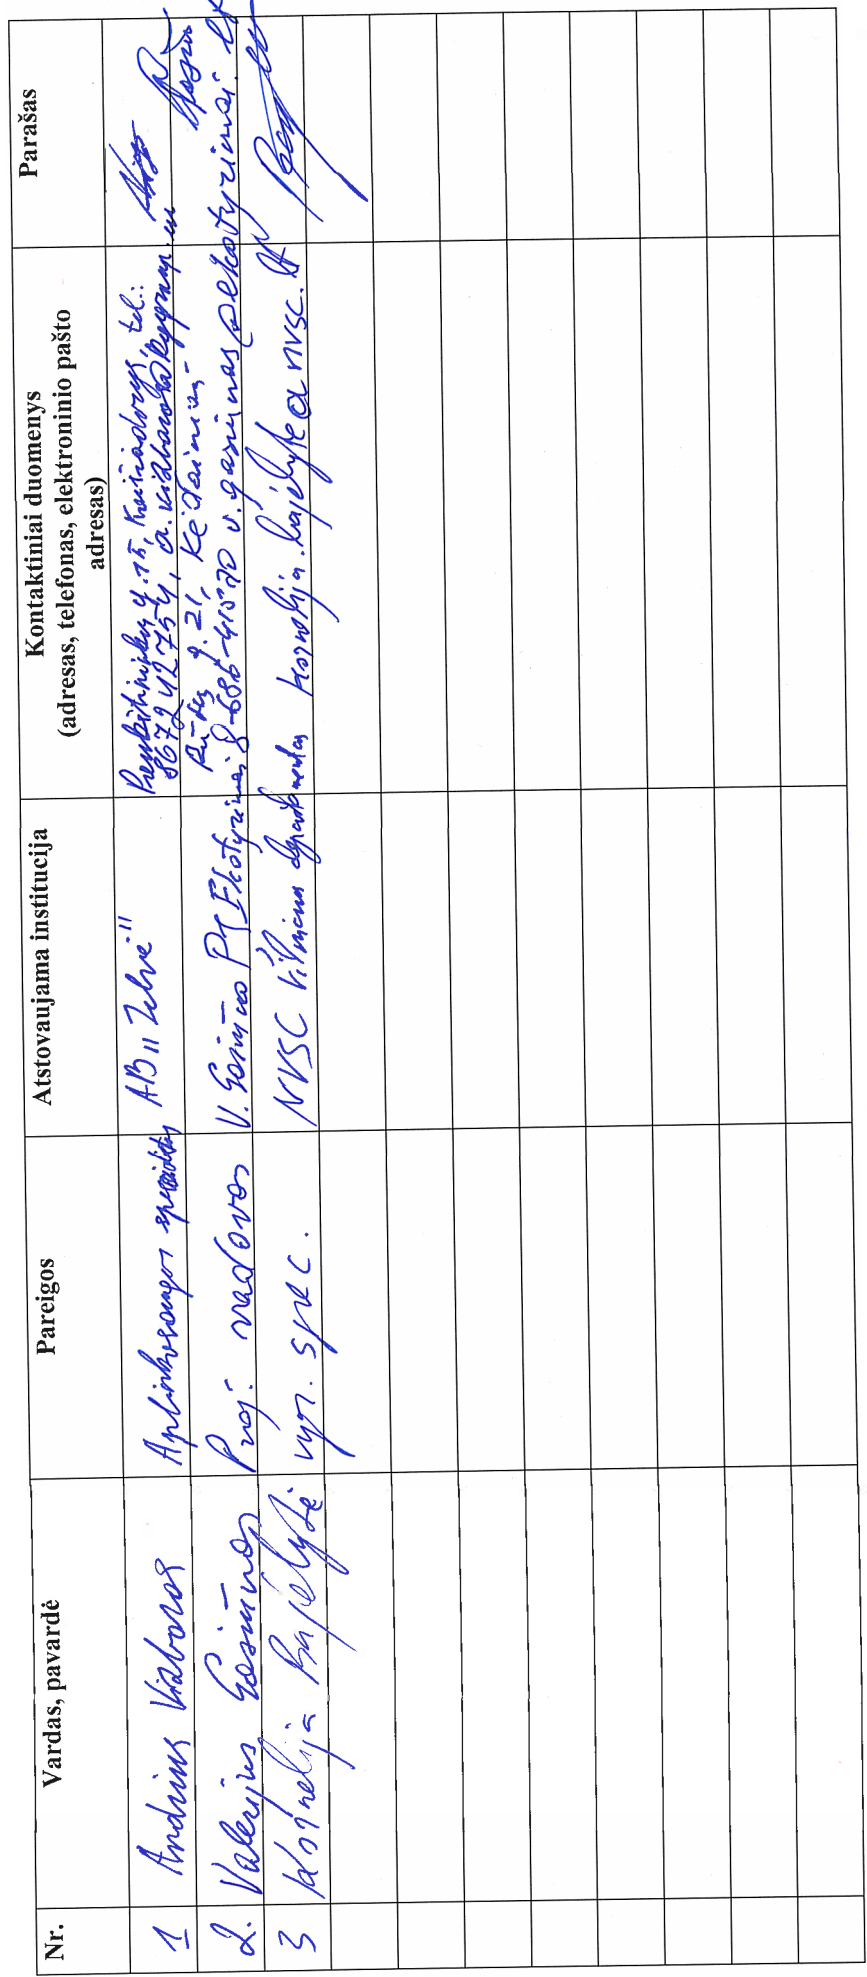 Nr.
Vardas, pavardė
Pareigos
Atstovaujama institucija
Kontaktiniai duomenys
(adresas, telefonas, elektroninio pašto
adresas)
Parašas
1
Andrius Vizbaras
Aplinkosaugos specialistas
AB „Zelvė"
g. 15, Kaišiadorys, tel.:
867242754, a.vizbaras@kggroup.eu
2.
Valerijus Gasiūnas
Proj. vadovas
V. Gasiūno PĮ Ekotyrimai
Rūtų g. 21, Kėdainiai,
8-686-41570 v.gasiunas@ekotyrimai.lt
3
Kornelija Bajelytė
vyr. spec.
NVSC Vilniaus departamentas
kornelija.bajelyte@nvsc.lt